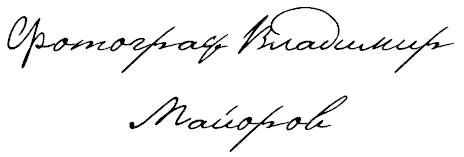 Фотограф Владимир
Майоров